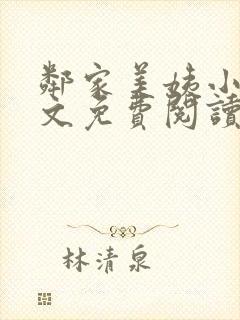 鄰家美姨小
文免費閱讀
林清泉